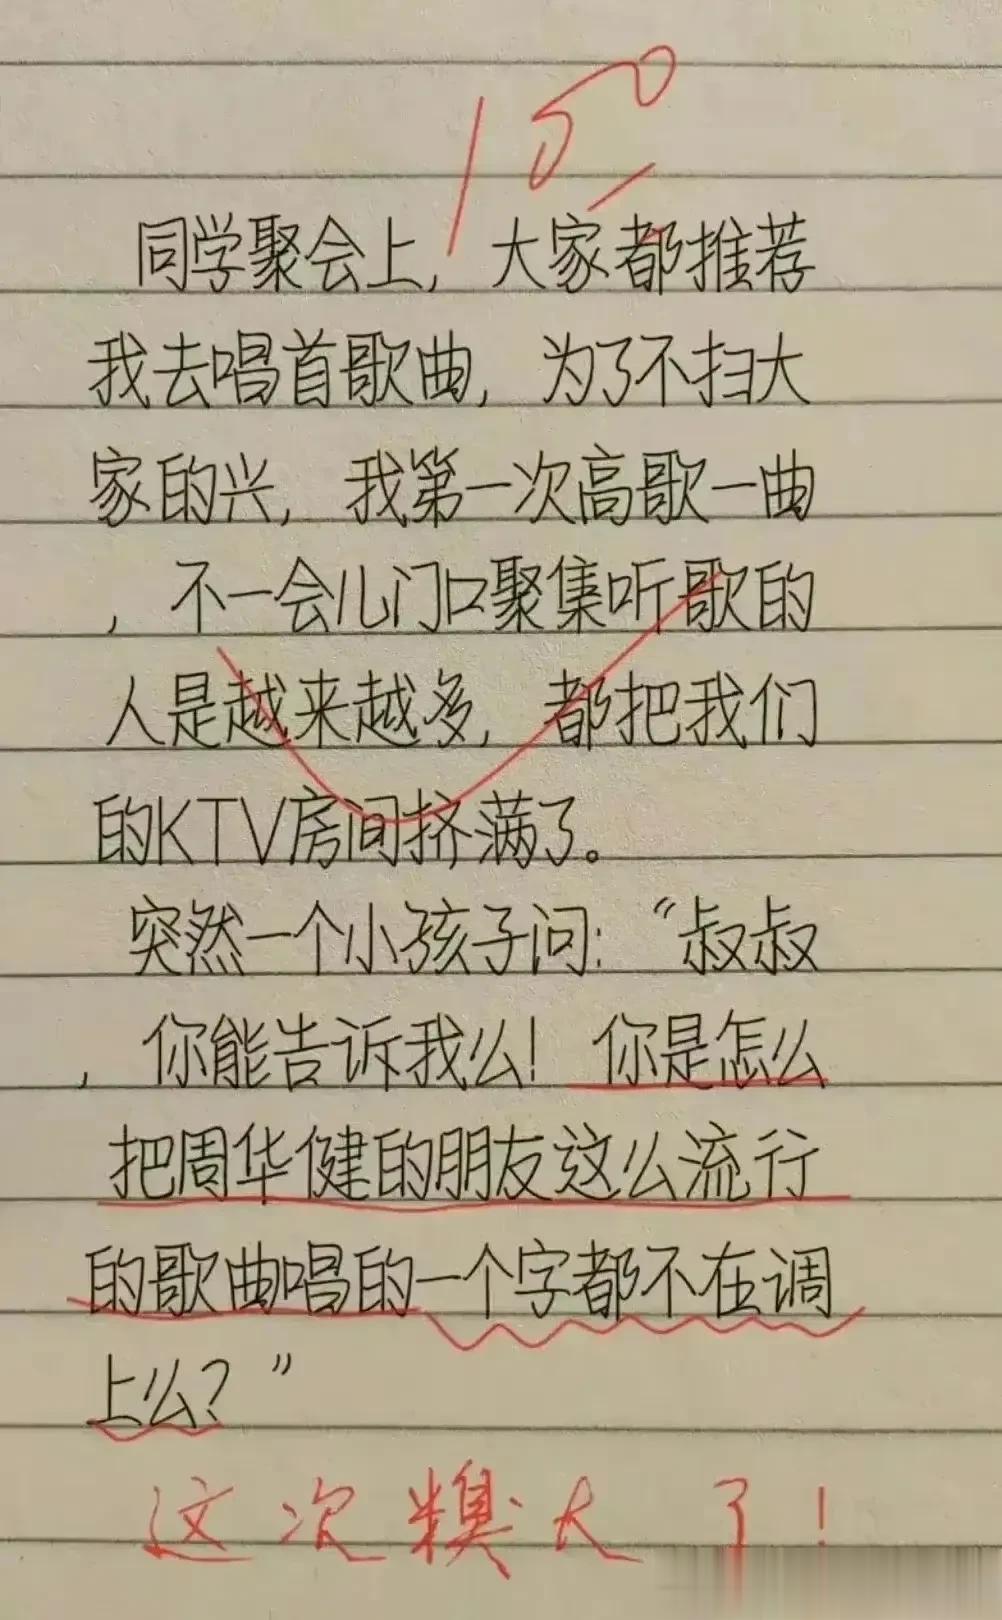 150
同学聚会上，大家都推荐
我去唱首歌曲，为了不扫大
家的兴，我第一次高歌一曲
，不一会儿门口聚集听歌的
人是越来越多，都把我们
的KTV房间挤满了。
突然一个小孩子问：“叔叔
，你能告诉我么！你是怎么
把周华健的朋友这么流行
的歌曲唱的一个字都不在调
上么？”
这次糗大了！